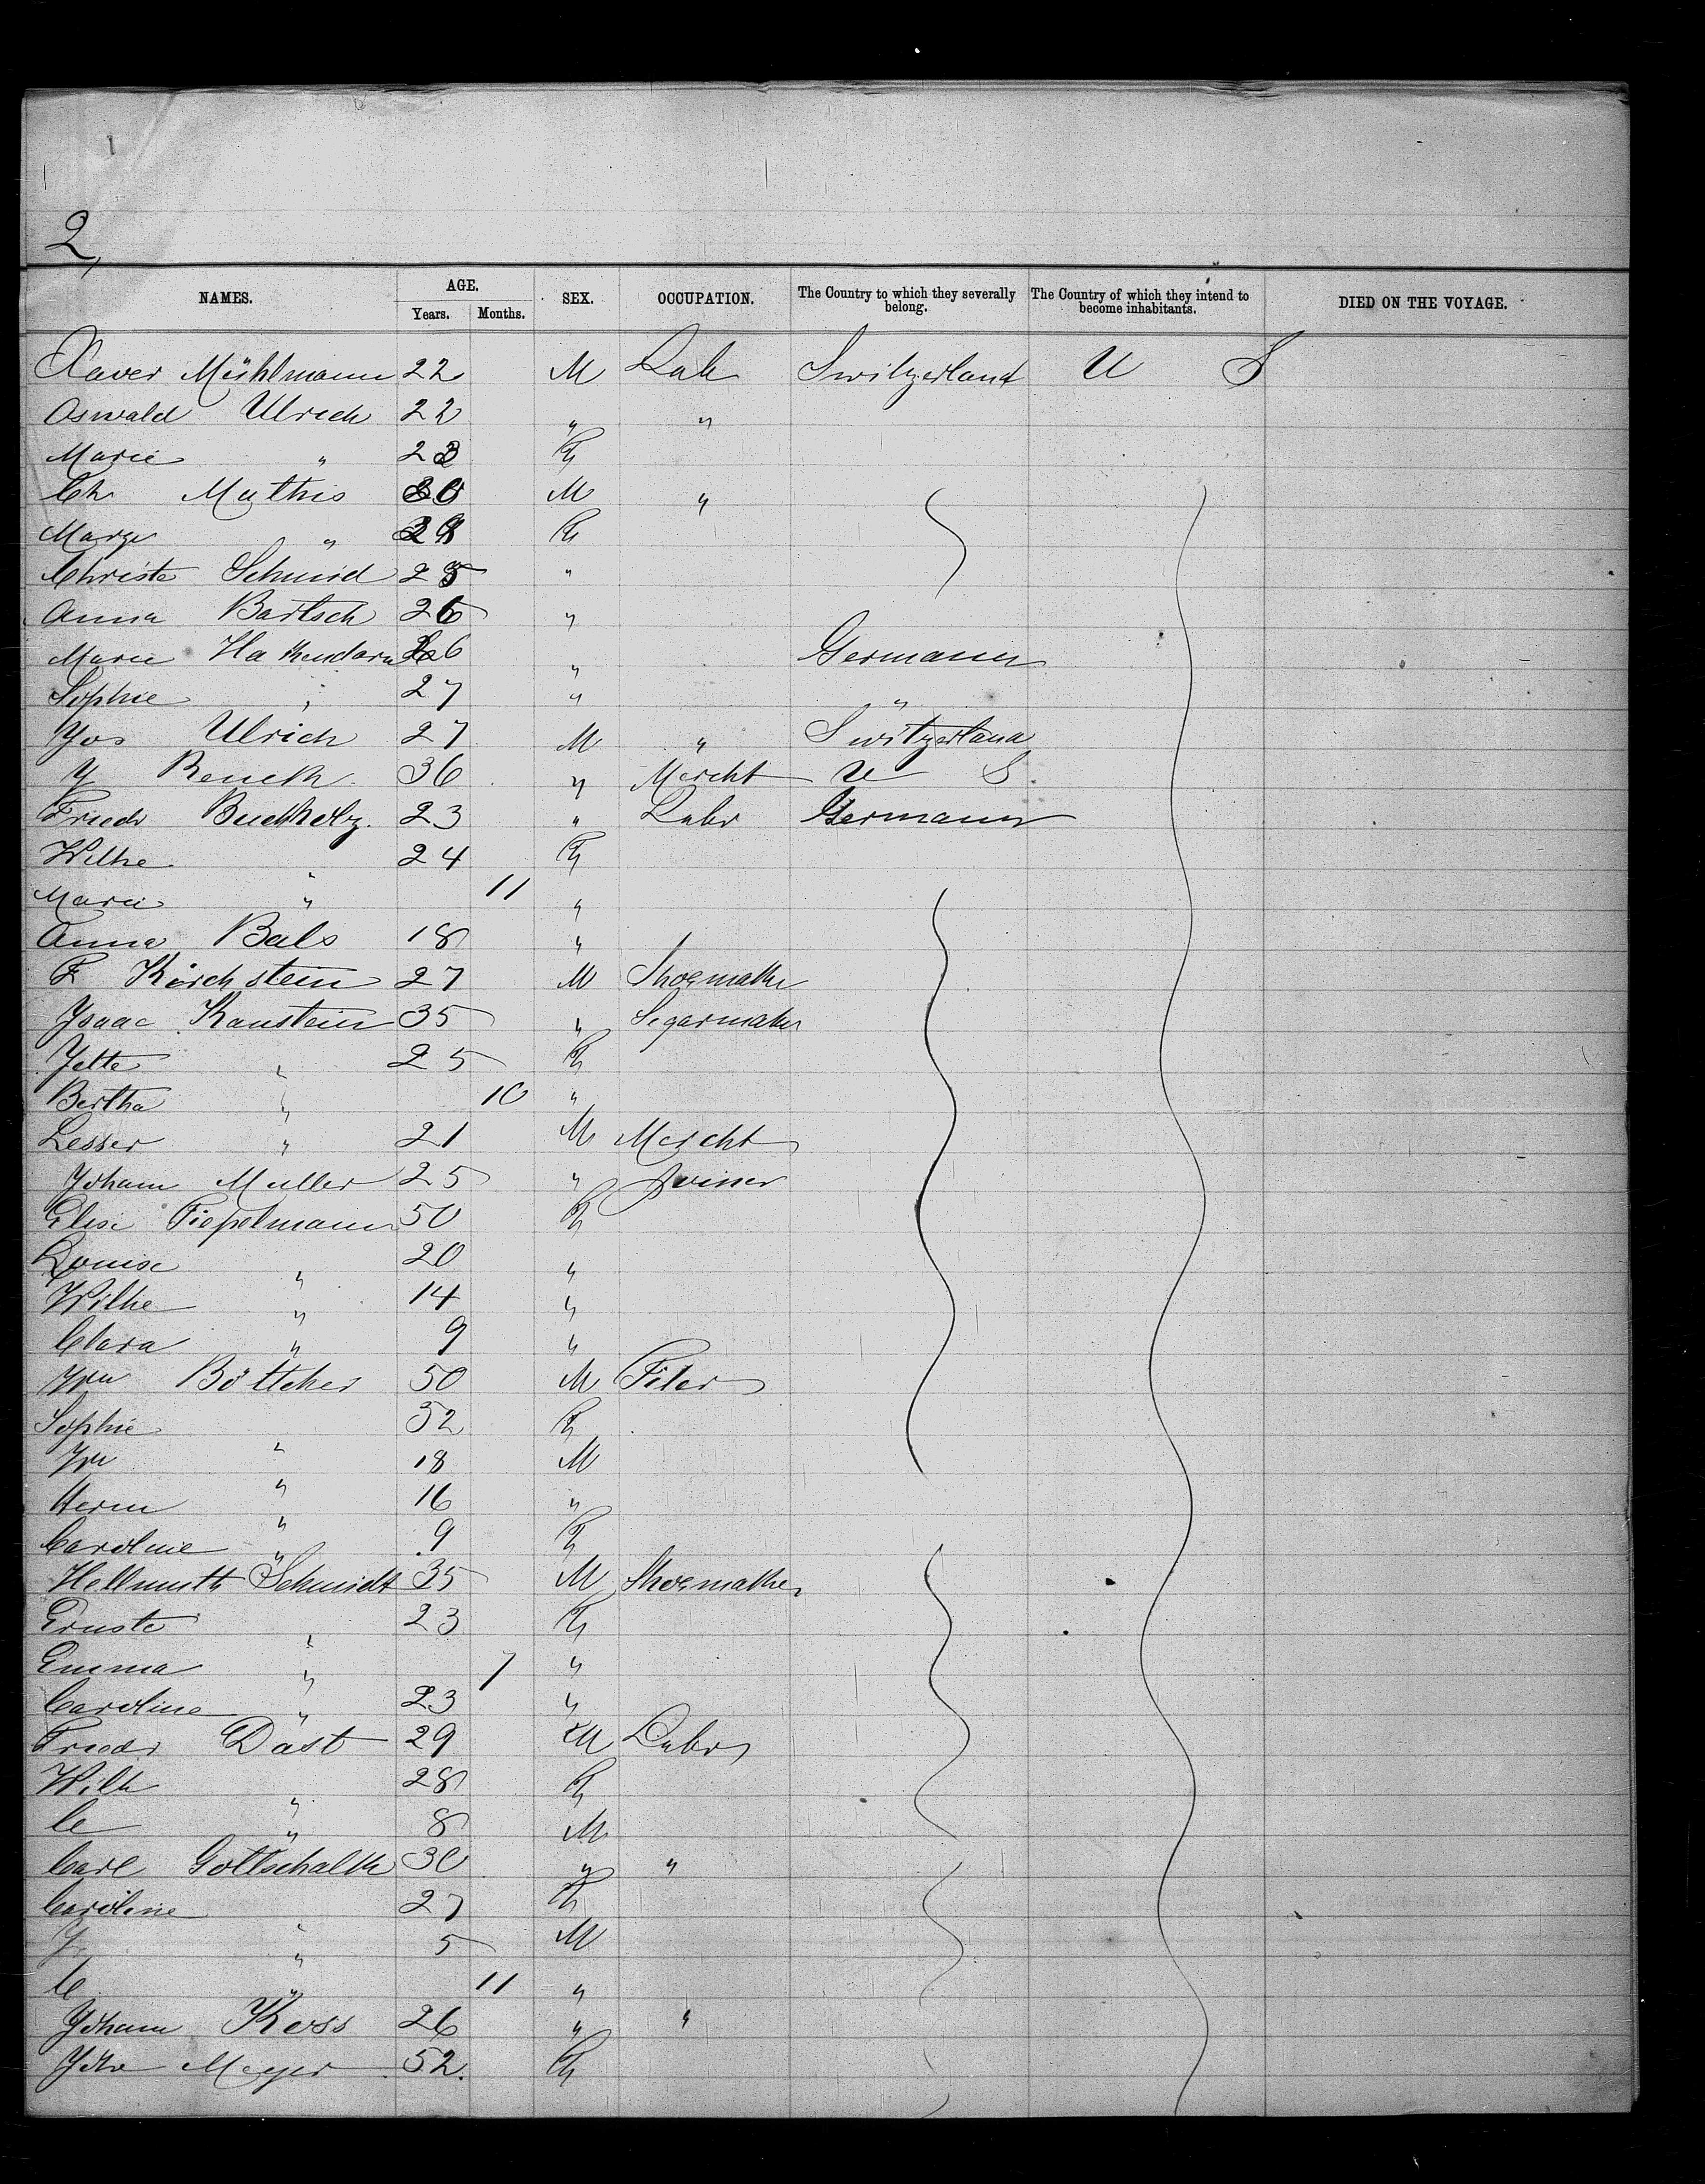 2,
NAMES. AGE. Years. Months. SEX. OCCUPATION. The Country to which they severally belong. The Country of which they intend to become inhabitants. DIED ON THE VOYAGE.
Xaver Mühlmann 22 M Lab Switzerland U S
Oswald Ulrich 22 " "
Marie " 23 F
Ch Mathis 30 M "
Marge " 28 F
Christe Schmid 25 "
Anna Bartsch 26 "
Marie 26 " Germany
Sophie " 27 " "
Jos Ulrich 27 M " Switzerland
J 36 " Mercht U S
Friedr Buchholz. 23 " Labr Germany
Wilhe " 24 F
Marie " 11 "
Anna Bals 18 "
F Kirchstein 27 M Shoemaker
Isaac Kanstein 35 " Segarmaker
Jette " 25 F
Bertha " 10 "
Lesser " 21 M Mercht
Johann Muller 25 " Joiner
Elise 50 F
Louise " 20 "
Wilhe " 14 "
Clara " 9 "
Wm Böttcher 50 M Filer
Sophie " 52 F
Wm " 18 M
Herm " 16 "
Caroline " 9 F
Hellmuth Schmidt 35 M Shoemaker
Ernste " 23 F
Emma " 7 "
Caroline " 23 "
Friedr Dast 29 M Labr
Wilh " 28 F
C " 8 M
Carl Gottschalk 30 " "
Caroline " 27 F
J " 5 M
C " 11 "
Johann Koss 26 " "
Meyer 52. F